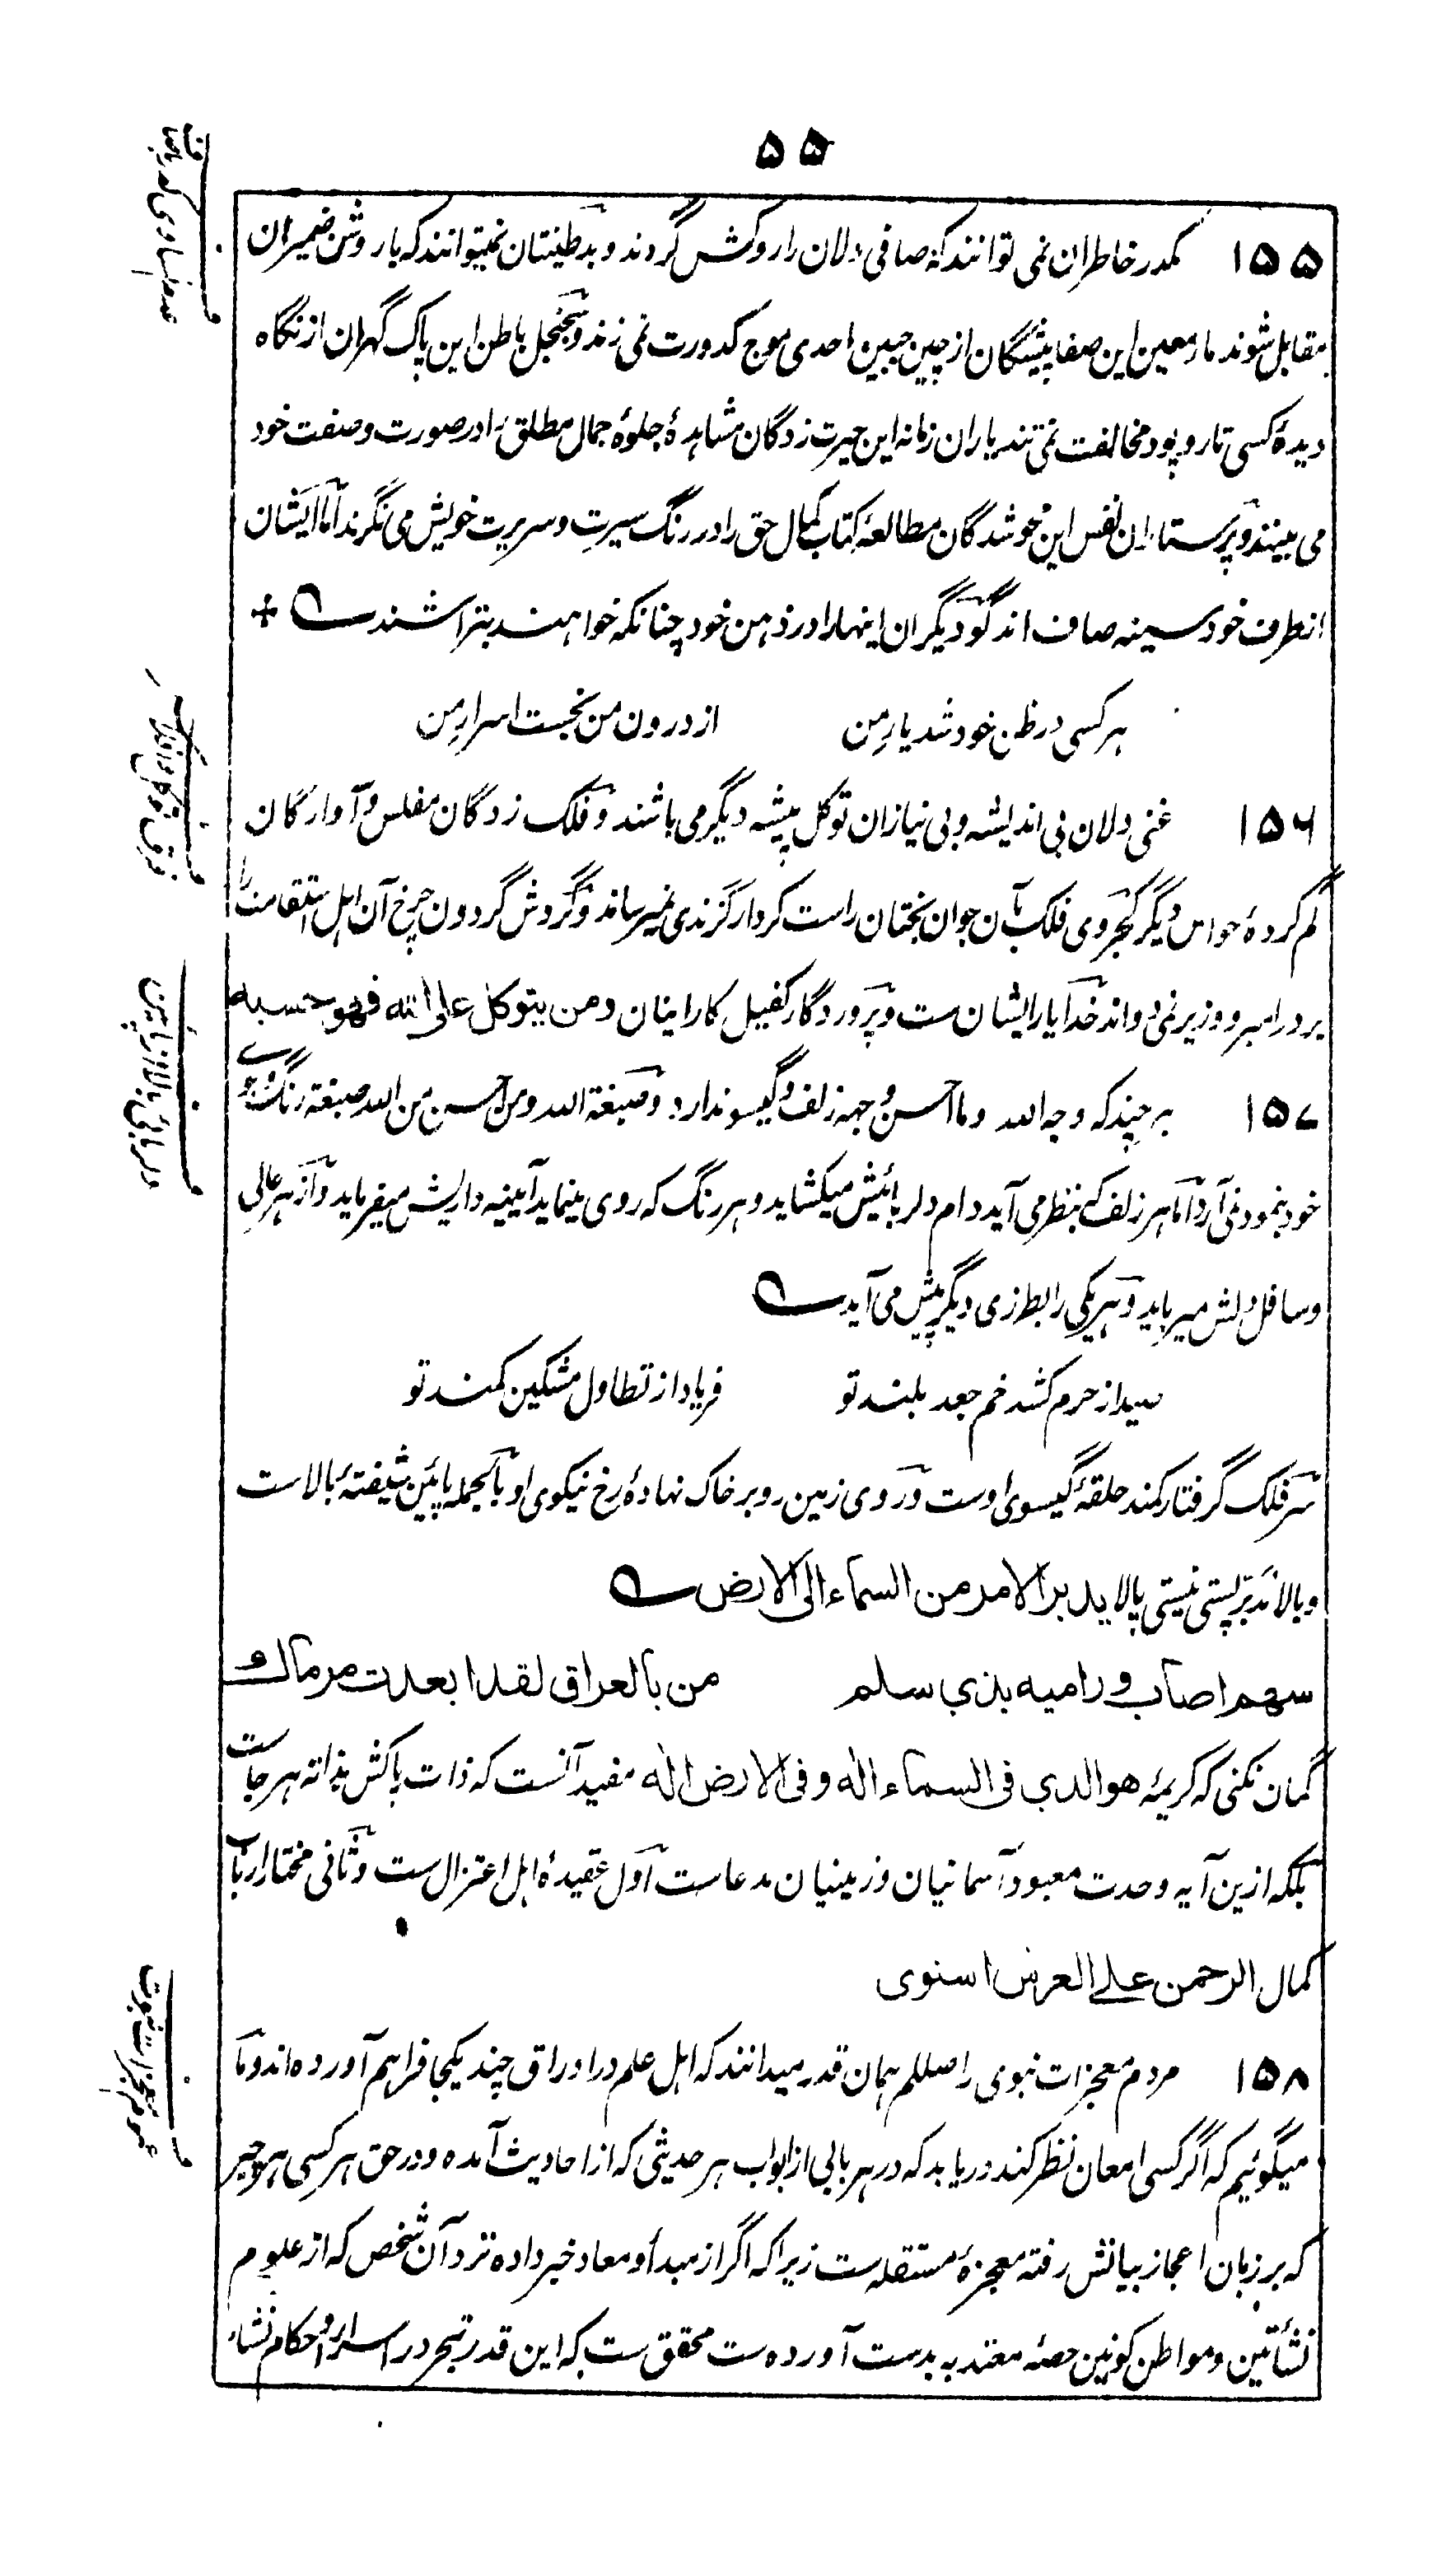 ۵۵
۱۵۵ مکدر خاطران نمی توانند که صافی دلان را روکش گردند و بد طینتان نمیتوانند که با روشن ضمیران
مقابل شوند ماء معین این صفا پیشگان از چین جبین احدی موج کدورت نمی زند و سجنجل باطن این پاک گهران از نگاه
دیدهٔ کسی تار و پود مخالفت نمی تند یاران زمانه این حیرت زدگان مشاهدهٔ جلوهٔ جمال مطلق را در صورت و صفت خود
می بینند و پرستاران نفس این خموشدگان مطالعهٔ کتاب کمال حق را در رنگ سیرت و سریرت خویش می نگرند اما ایشان
از طرف خود سینه صاف اند گو دیگران اینها را در ذهن خود چنانکه خواهند بتراشند
هر کسی در ظن خود شد یار من از درون من نجست اسرار من
۱۵۶ غنی دلان بی اندیشه و بی نیازان توکل پیشه دیگر می باشند و فلک زدگان مفلس و آوارگان
گم کردهٔ حواس دیگر کجروی فلک بآن جوان بختان راست کردار گزندی نمیرساند و گردش گردون چرخ آن اهل استقامت را
بر در امیر و وزیر نمی دواند خدا یار ایشان ست و پروردگار کفیل کار اینان و من یتوکل علی الله فهو حسبه
۱۵۷ هر چند که وجه الله و ما احسن وجهه زلف و گیسو ندارد و صبغة الله و من احسن من الله صبغة رنگ و بوے
خود بنمود نمی آرد اما هر زلف که بنظر می آید دام دلربائیش میکشاید و هر رنگ که روی مینماید آیینه داریش میفرماید و از هر عالی
و سافل دلش میرباید و هر یکی را بطرزی دیگر پیش می آید
صید از حرم کشد خم جعد بلند تو فریاد از تطاول مشکین کمند تو
سر فلک گرفتار کمند حلقهٔ گیسوی اوست و روی زمین رو بر خاک نهادهٔ رخ نیکوی او بالجمله پائین شیفتهٔ بالاست
و بالا تدبر پستی نیستی پالا یدبر الامر من السماء الی الارض
سهم اصاب و رامیه بذی سلم من بالعراق لقد ابعدت مرماك
گمان نکنی که کریمهٔ هو الذی فی السماء اله و فی الارض اله مفید آنست که ذات پاکش بذاته هر جاست
بلکه ازین آیه وحدت معبود آسمانیان و زمینیان مدعاست اول عقیدهٔ اهل اعتزال ست و ثانی مختار ارباب
کمال الرحمن علی العرش استوی
۱۵۸ مردم معجزات نبوی را صللم همان قدر میدانند که اهل علم در اوراق چند یکجا فراهم آورده اند و ما
میگوئیم که اگر کسی امعان نظر کند دریابد که در هر بابی از ابواب هر حدیثی که از احادیث آمده و در حق هر کسی هر چیز
که بر زبان اعجاز بیانش رفته معجزهٔ مستقله ست زیرا که اگر از مبدأ و معاد خبر داده نزد آن شخص که از علوم
نشأتین و مواطن کونین حصهٔ معتد به بدست آورده ست محقق ست که این قدر تبحر در اسرار و احکام نشاء
فرق توکل و افلاس
دلربائی بالا از پائین
عموم معجزات نبوت